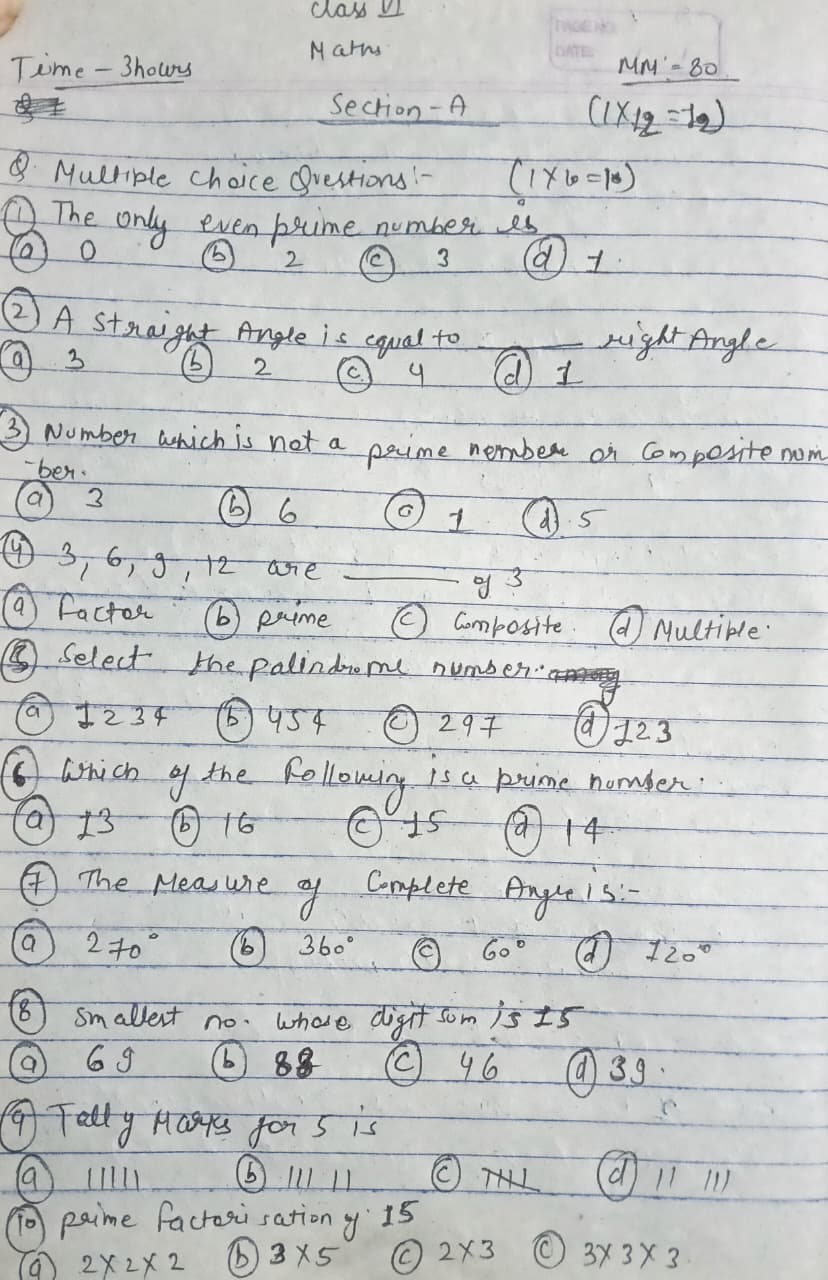 Class VI
PAGE NO.
DATE:
Maths
Time - 3hours MM:- 80
Section - A (1X12=12)
Q. Multiple Choice Questions:- (1X6=16)
① The only even prime number is
ⓐ 0 ⓑ 2 ⓒ 3 ⓓ 1.
② A Straight Angle is equal to ______ right Angle
ⓐ 3 ⓑ 2 ⓒ 4 ⓓ 1
③ Number which is not a prime nember or Composite num
-ber.
ⓐ 3 ⓑ 6 ⓒ 1 ⓓ 5
④ 3, 6, 9, 12 are ______ of 3
ⓐ factor ⓑ prime ⓒ Composite. ⓓ Multiple.
⑤ Select the palindrome number.
ⓐ 1234 ⓑ 454 ⓒ 297 ⓓ 123
⑥ Which of the following is a prime number:
ⓐ 13 ⓑ 16 ⓒ 15 ⓓ 14
⑦ The Measure of Complete Angle is:-
ⓐ 270° ⓑ 360° ⓒ 60° ⓓ 120°
⑧ Smallest no. whose digit sum is 15
ⓐ 69 ⓑ 88 ⓒ 46 ⓓ 39.
⑨ Tally Marks for 5 is
ⓐ ||||| ⓑ ||| || ⓒ 𝍸 ⓓ || |||
⑩ prime factorisation of 15
ⓐ 2X2X2 ⓑ 3X5 ⓒ 2X3 ⓒ 3X3X3.